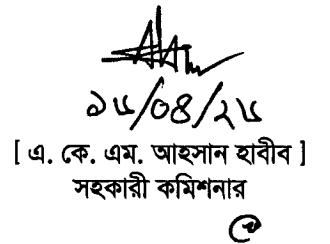 ১৮/০৪/২৫
[ এ. কে. এম. আহসান হাবীব ]
সহকারী কমিশনার